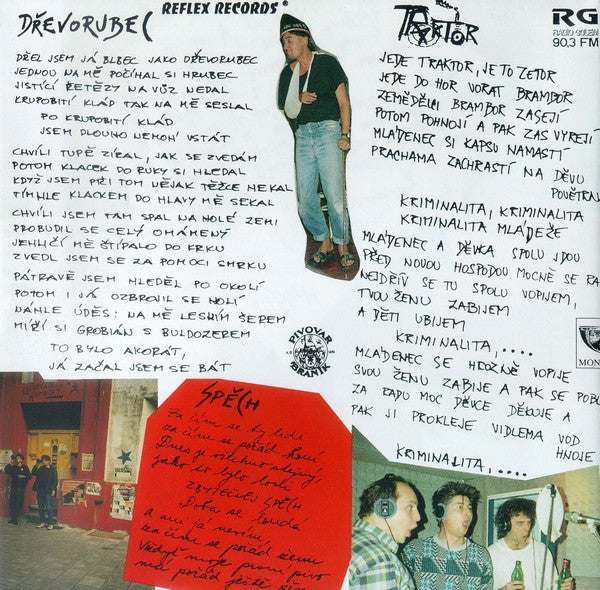 DŘEVORUBEC
REFLEX RECORDS®
DŘEL JSEM JÁ BLBEC JAKO DŘEVORUBEC
JEDNOU NA MĚ POČÍHAL SI HRUBEC
JISTÍCÍ ŘETĚZY NA VŮZ NEDAL
KRUPOBITÍ KLÁD TAK NA MĚ SESLAL
PO KRUPOBITÍ KLÁD
JSEM DLOUHO NEMOH' VSTÁT
CHVÍLI TUPĚ ZÍRAL, JAK SE ZVEDÁM
POTOM KLACEK DO RUKY SI HLEDAL
KDYŽ JSEM PŘI TOM NĚJAK TĚŽCE HEKAL
TÍMHLE KLACKEM DO HLAVY MĚ SEKAL
CHVÍLI JSEM TAM SPAL NA HOLÉ ZEMI
PROBUDIL SE CELÝ OMÁMENÝ
JEHLIČÍ MĚ ŠTÍPALO DO KRKU
ZVEDL JSEM SE ZA POMOCI SMRKU
PÁTRAVĚ JSEM HLEDĚL PO OKOLÍ
POTOM I JÁ OZBROJIL SE HOLÍ
NÁHLE ÚDĚS: NA MĚ LESNÍM ŠEREM
MÍŘÍ SI GROBIÁN S BULDOZEREM
TO BYLO AKORÁT,
JÁ ZAČAL JSEM SE BÁT
TRAKTOR
RG
90.3 FM
JEDE TRAKTOR, JE TO ZETOR
JEDE DO HOR VORAT BRAMBOR
ZEMĚDĚLCI BRAMBOR ZASEJÍ
POTOM POHNOJÍ A PAK ZAS VYREJÍ
MLÁDENEC SI KAPSU NAMASTÍ
PRACHAMA ZACHRASTÍ NA DĚVU
POVĚTRN
KRIMINALITA, KRIMINALITA
KRIMINALITA MLÁDEŽE
MLÁDENEC A DĚVKA SPOLU JDOU
PŘED NOVOU HOSPODOU MOCNĚ SE RA
NEJDŘÍV SE TU SPOLU VOPIJEM,
TVOU ŽENU ZABIJEM
A DĚTI UBIJEM
KRIMINALITA,....
MLÁDENEC SE HROZNĚ VOPIJE
SVOU ŽENU ZABIJE A PAK SE POBL
ZA RADU MOC DĚVCE DĚKUJE A
PAK JI PROKLEJE VIDLEMA VOD
HNOJE
KRIMINALITA,....
PIVOVAR
BRANÍK
MON
SPĚCH
Za čím se ty lidi
za čím se pořád honí
Dnes je všechno stejný
jako to bylo loni
ZBYTEČNEJ SPĚCH
Doba se loudá
A ani já nevím,
za čím se pořád ženu
Vždyť moje první pivo
má pořád ještě